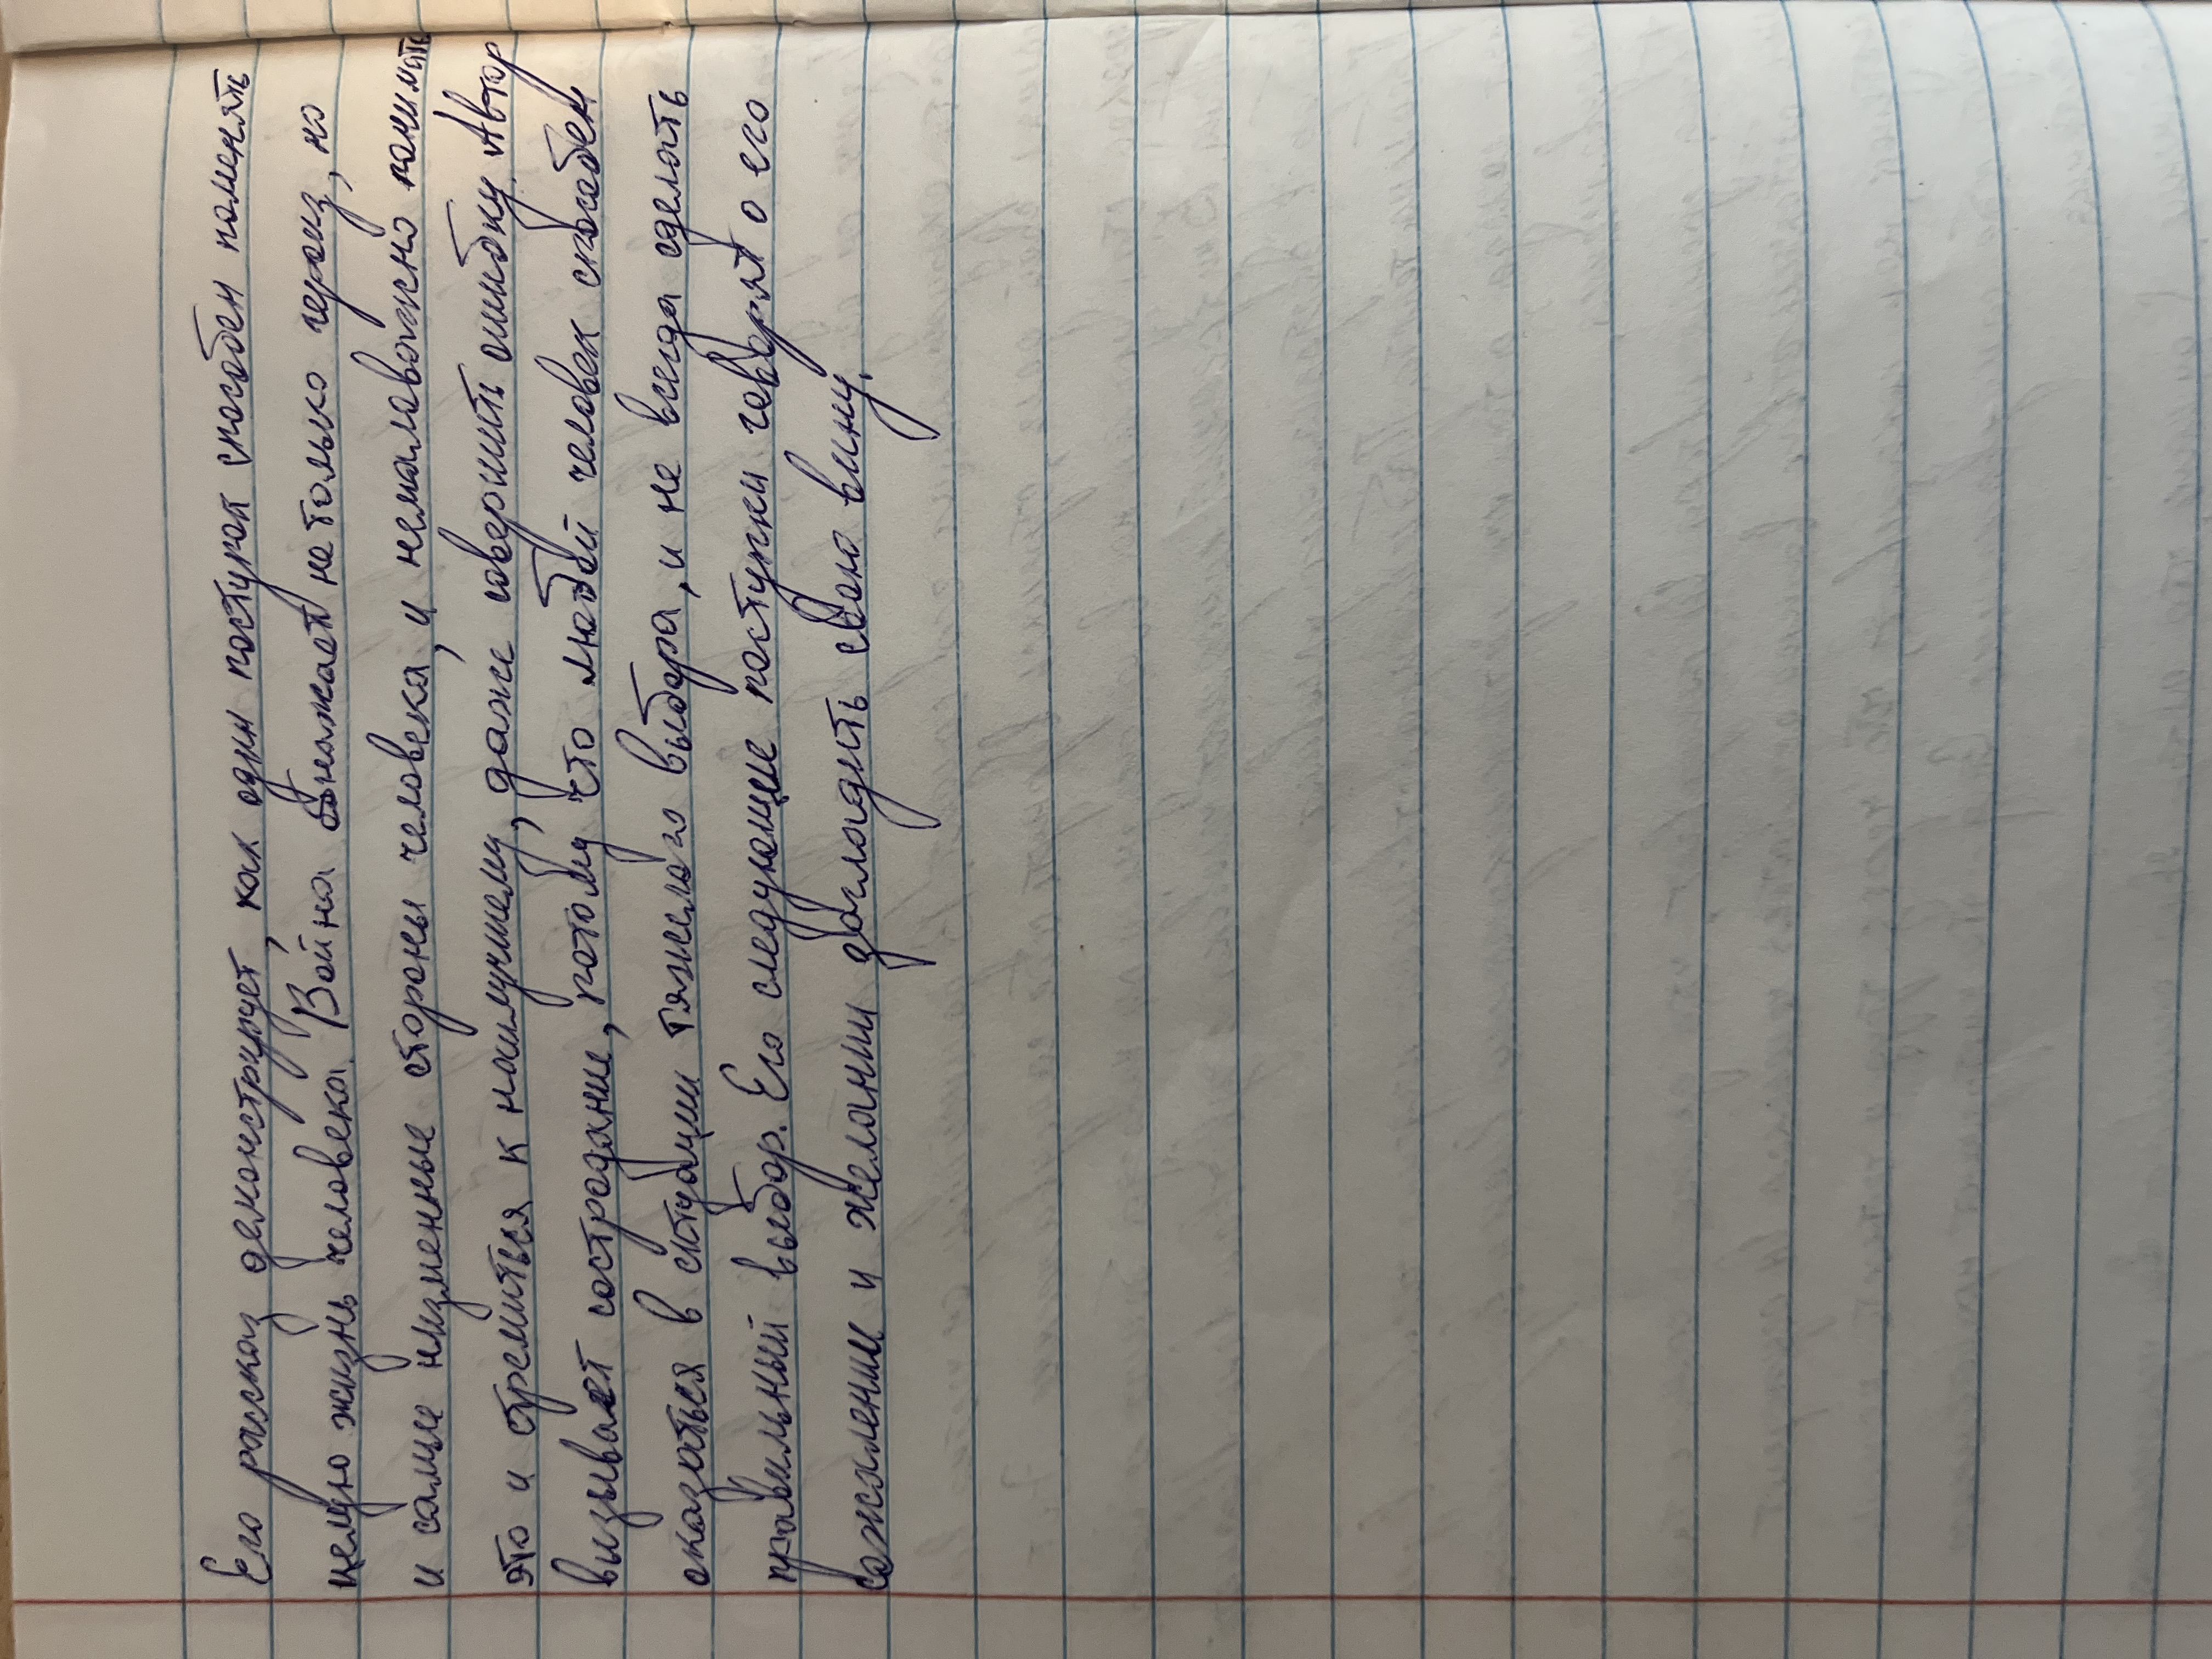 Его рассказ демонстрирует, как один поступок способен поменять
целую жизнь человека. Война обнажает не только героиз, но
и самые низменные стороны человека, и немаловажно понимать
это и стремиться к наилучшему, даже совершить ошибку. Автор
визывает сострадание, потому что любой человек способен
оказаться в ситуации тяжелого выбора, и не всегда сделать
правильный выбор. Его следующие поступки говорят о его
сожелении и желании загладить свою вину.